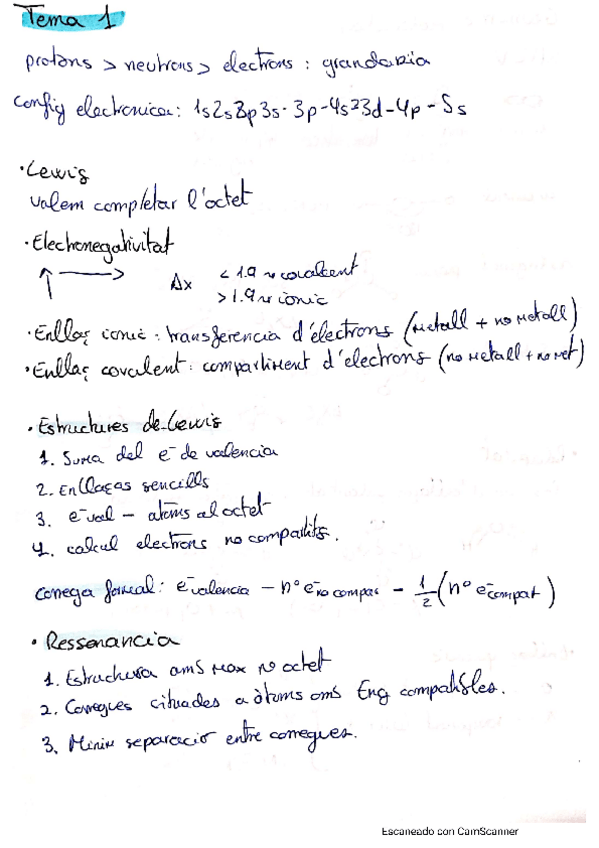 Tema 1
protons > neutrons > electrons : grandaria
Config electronica: 1s2s2p3s-3p-4s3d-4p-5s
· Lewis
volem completar l'octet
· Electronegativitat
Δx < 1.9 → covalent
> 1.9 → ionic
· Enllaç ionic : transferencia d'electrons (Metall + no Metall)
· Enllaç covalent: compartiment d'electrons (no Metall + no met)
· Estructures de Lewis
1. Suma del e⁻ de valencia
2. Enllaços sencills
3. e⁻val - atoms al octet
4. calcul electrons no compartits.
Carrega formal: e⁻valencia - nº e⁻no compar - 1/2 (nº e⁻compart)
· Ressonancia
1. Estructura amb Max nº octet
2. Carregues cituades a àtoms amb Eng compatibles.
3. Minim separació entre carregues.
Escaneado con CamScanner